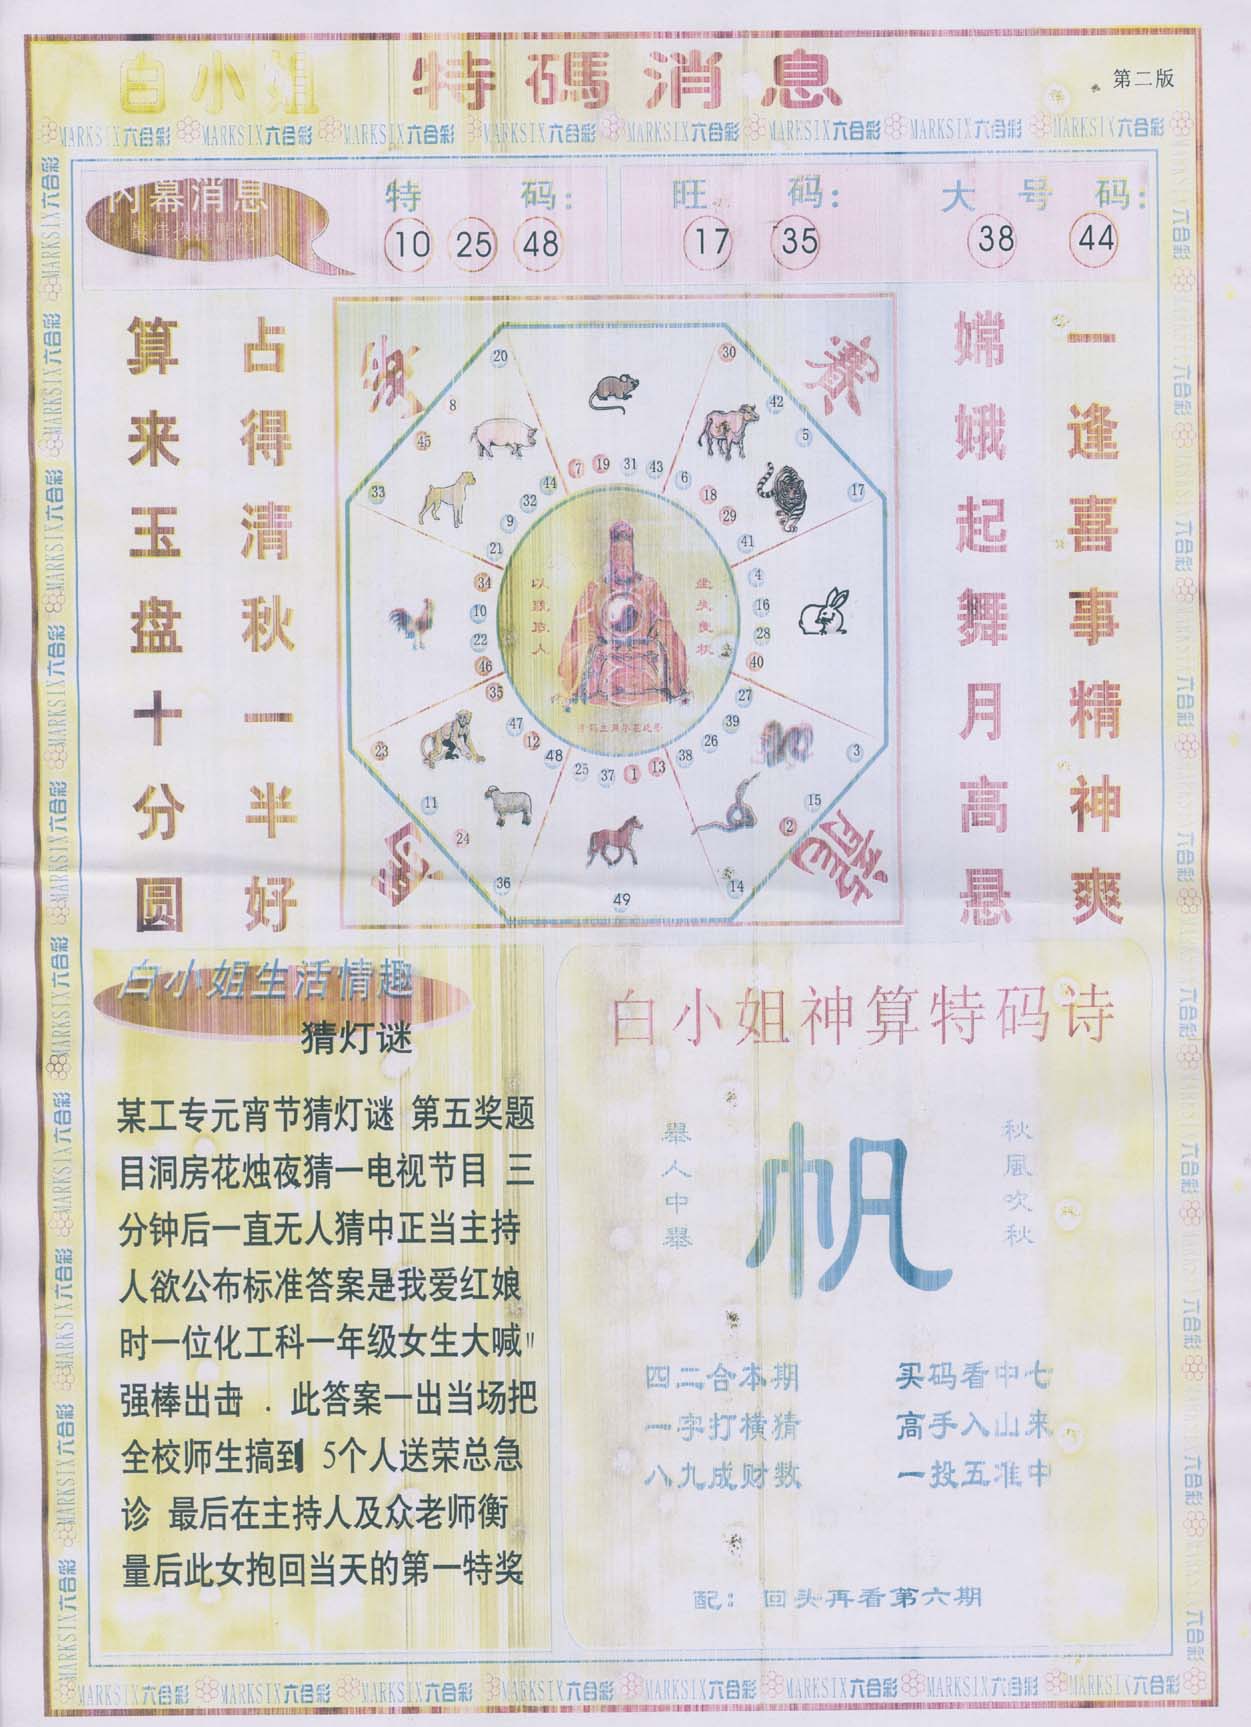 白小姐 特碼消息
第二版
MARKSIX六合彩 MARKSIX六合彩 MARKSIX六合彩 MARKSIX六合彩 MARKSIX六合彩 MARKSIX六合彩 MARKSIX六合彩 MARKSIX六合彩
内幕消息
特 码:
10 25 48
旺 码:
17 35
大 号 码:
38 44
一逢喜事精神爽
嫦娥起舞月高悬
占得清秋一半好
算来玉盘十分圆
20 30
8 42
45 5
33 17
7 19 31 43
44 6
32 18
9 29
21 41
34 4
10 16
22 28
46 40
35 27
47 39
12 26
48 38
25 37 1 13
23 3
11 15
24 2
36 14
49
龍
白小姐生活情趣
猜灯谜
某工专元宵节猜灯谜 第五奖题
目洞房花烛夜猜一电视节目 三
分钟后一直无人猜中正当主持
人欲公布标准答案是我爱红娘
时一位化工科一年级女生大喊"
强棒出击 . 此答案一出当场把
全校师生搞到 5个人送荣总急
诊 最后在主持人及众老师衡
量后此女抱回当天的第一特奖
白小姐神算特码诗
秋風吹秋
帆
舉人中舉
四二合本期 买码看中七
一字打横猜 高手入山来
八九成财数 一投五准中
配: 回头再看第六期
MARKSIX六合彩 MARKSIX六合彩 MARKSIX六合彩 MARKSIX六合彩 MARKSIX六合彩 MARKSIX六合彩 MARKSIX六合彩 MARKSIX六合彩